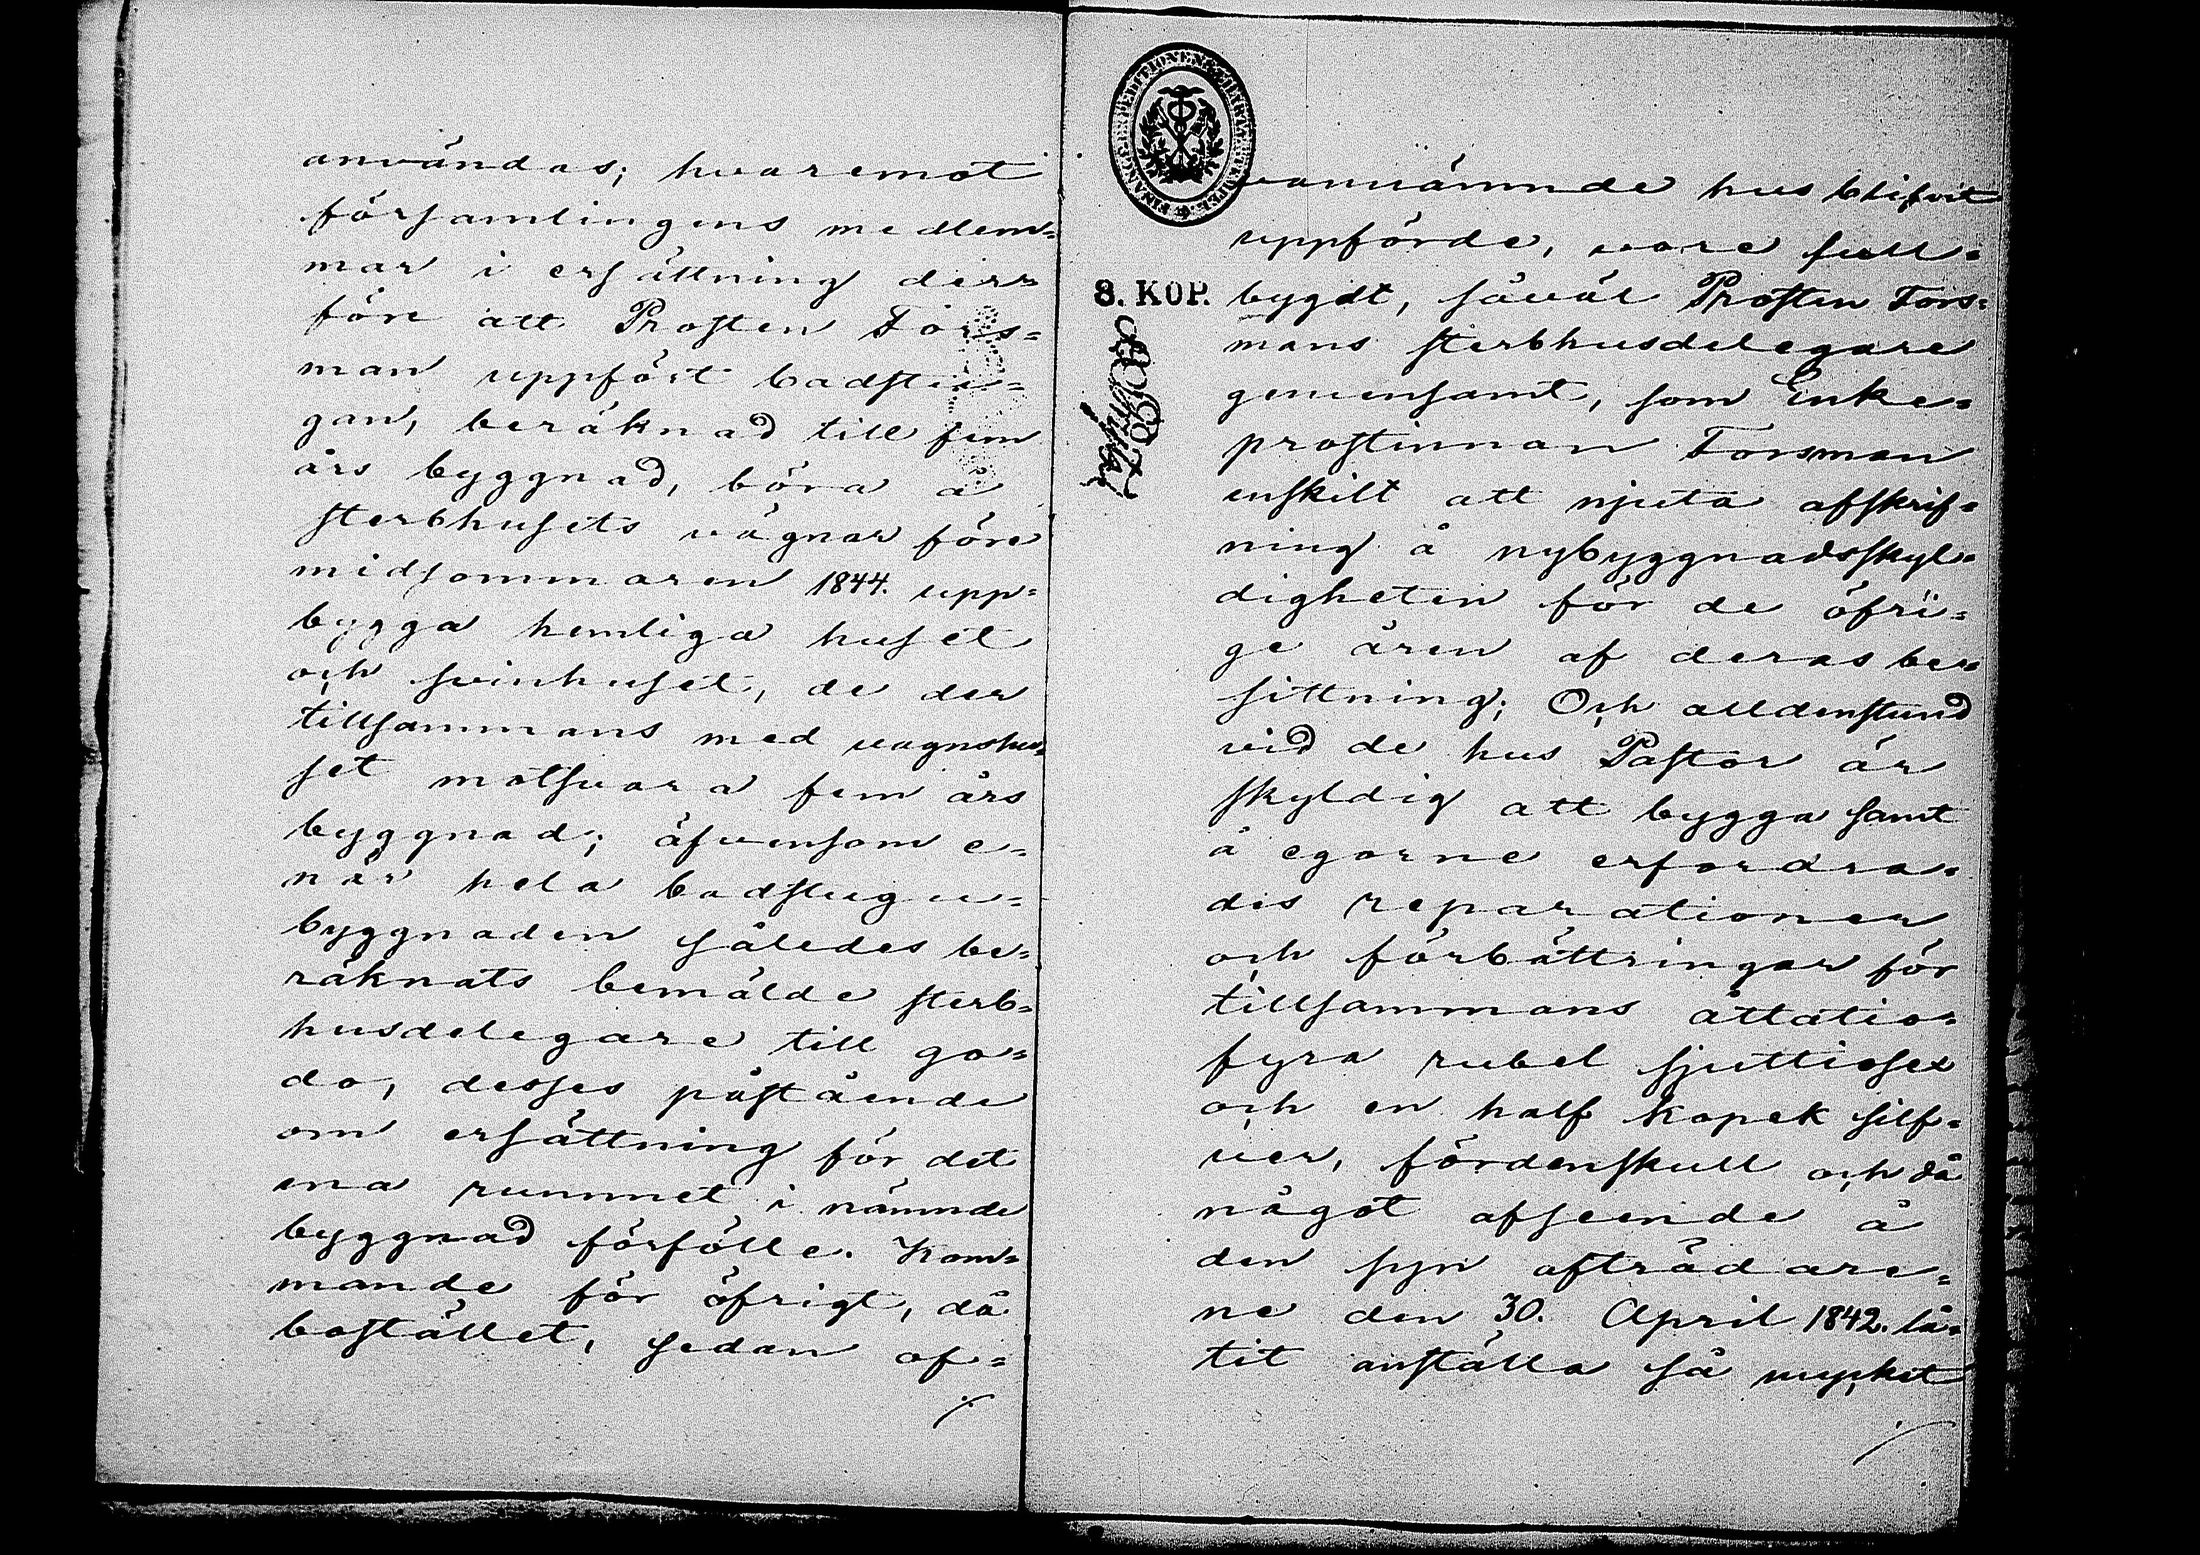 användas; hvaremot
församlingens medlem=
mar i ersättning der=
före att Prosten Fors=
man uppfört badstu=
gan, beräknad till fem
års byggnad, böra å
sterbhusets vägnar före
midsommaren 1844. upp=
bygga hemliga huset
och svinhuset, de der
tillsammans med vagnshu=
set motsvara fem års
byggnad; äfvensom e=
när hela badstugu=
byggnaden således be=
räknats bemälde sterb=
husdelegare till go=
do, desses påstående
om ersättning för det
ena rummet i nämnde
byggnad förfölle. Kom=
mande för öfrigt, då
bostället, sedan of=
./.
FINANCE EXPEDITIONENS CHARTÆ STEMPEL.
8. KOP.
vannämnde hus blifvit
uppförde, vore full=
bygdt, såväl Prosten Fors=
mans sterbhusdelegare
gemensamt, som Enke=
prostinnan Forsman
enskilt att njuta afskrif=
ning å nybyggnadsskyl=
digheten för de öfri=
ge åren af deras be=
sittning; Och alldenstund
vid de hus Pastor är
skyldig att bygga samt
å egorne erfordra=
des reparationer
och förbättringar för
tillsammans åttatio=
fyra rubel sjuttiosex
och en half kopek silf=
ver, fördenskull och då
något afseende å
den syn afträdare=
ne den 30. April 1842. lå=
tit anställa så mycket
./.